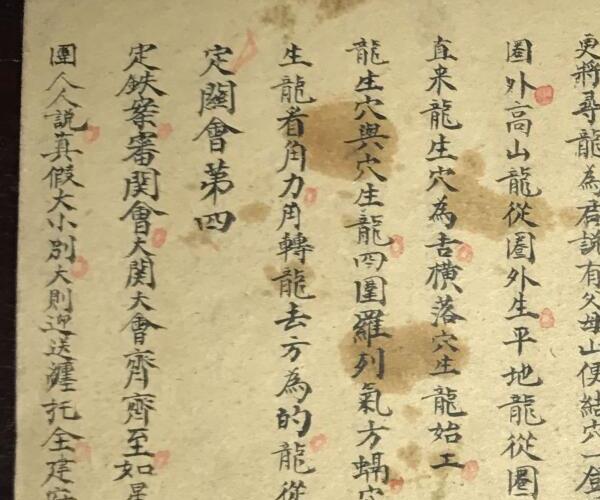 更將尋龍為君說有父母山便結穴一
圈外高山龍從圈外生平地龍從圈
直來龍生穴為吉橫落穴生龍始工
龍生穴與穴生龍四圍羅列氣方
生龍看角力角轉龍去方為的龍從
定關會第四
定鉄案審関會大関大會齊齊至如星
團人人説真假大小別大則迎送纏托全建